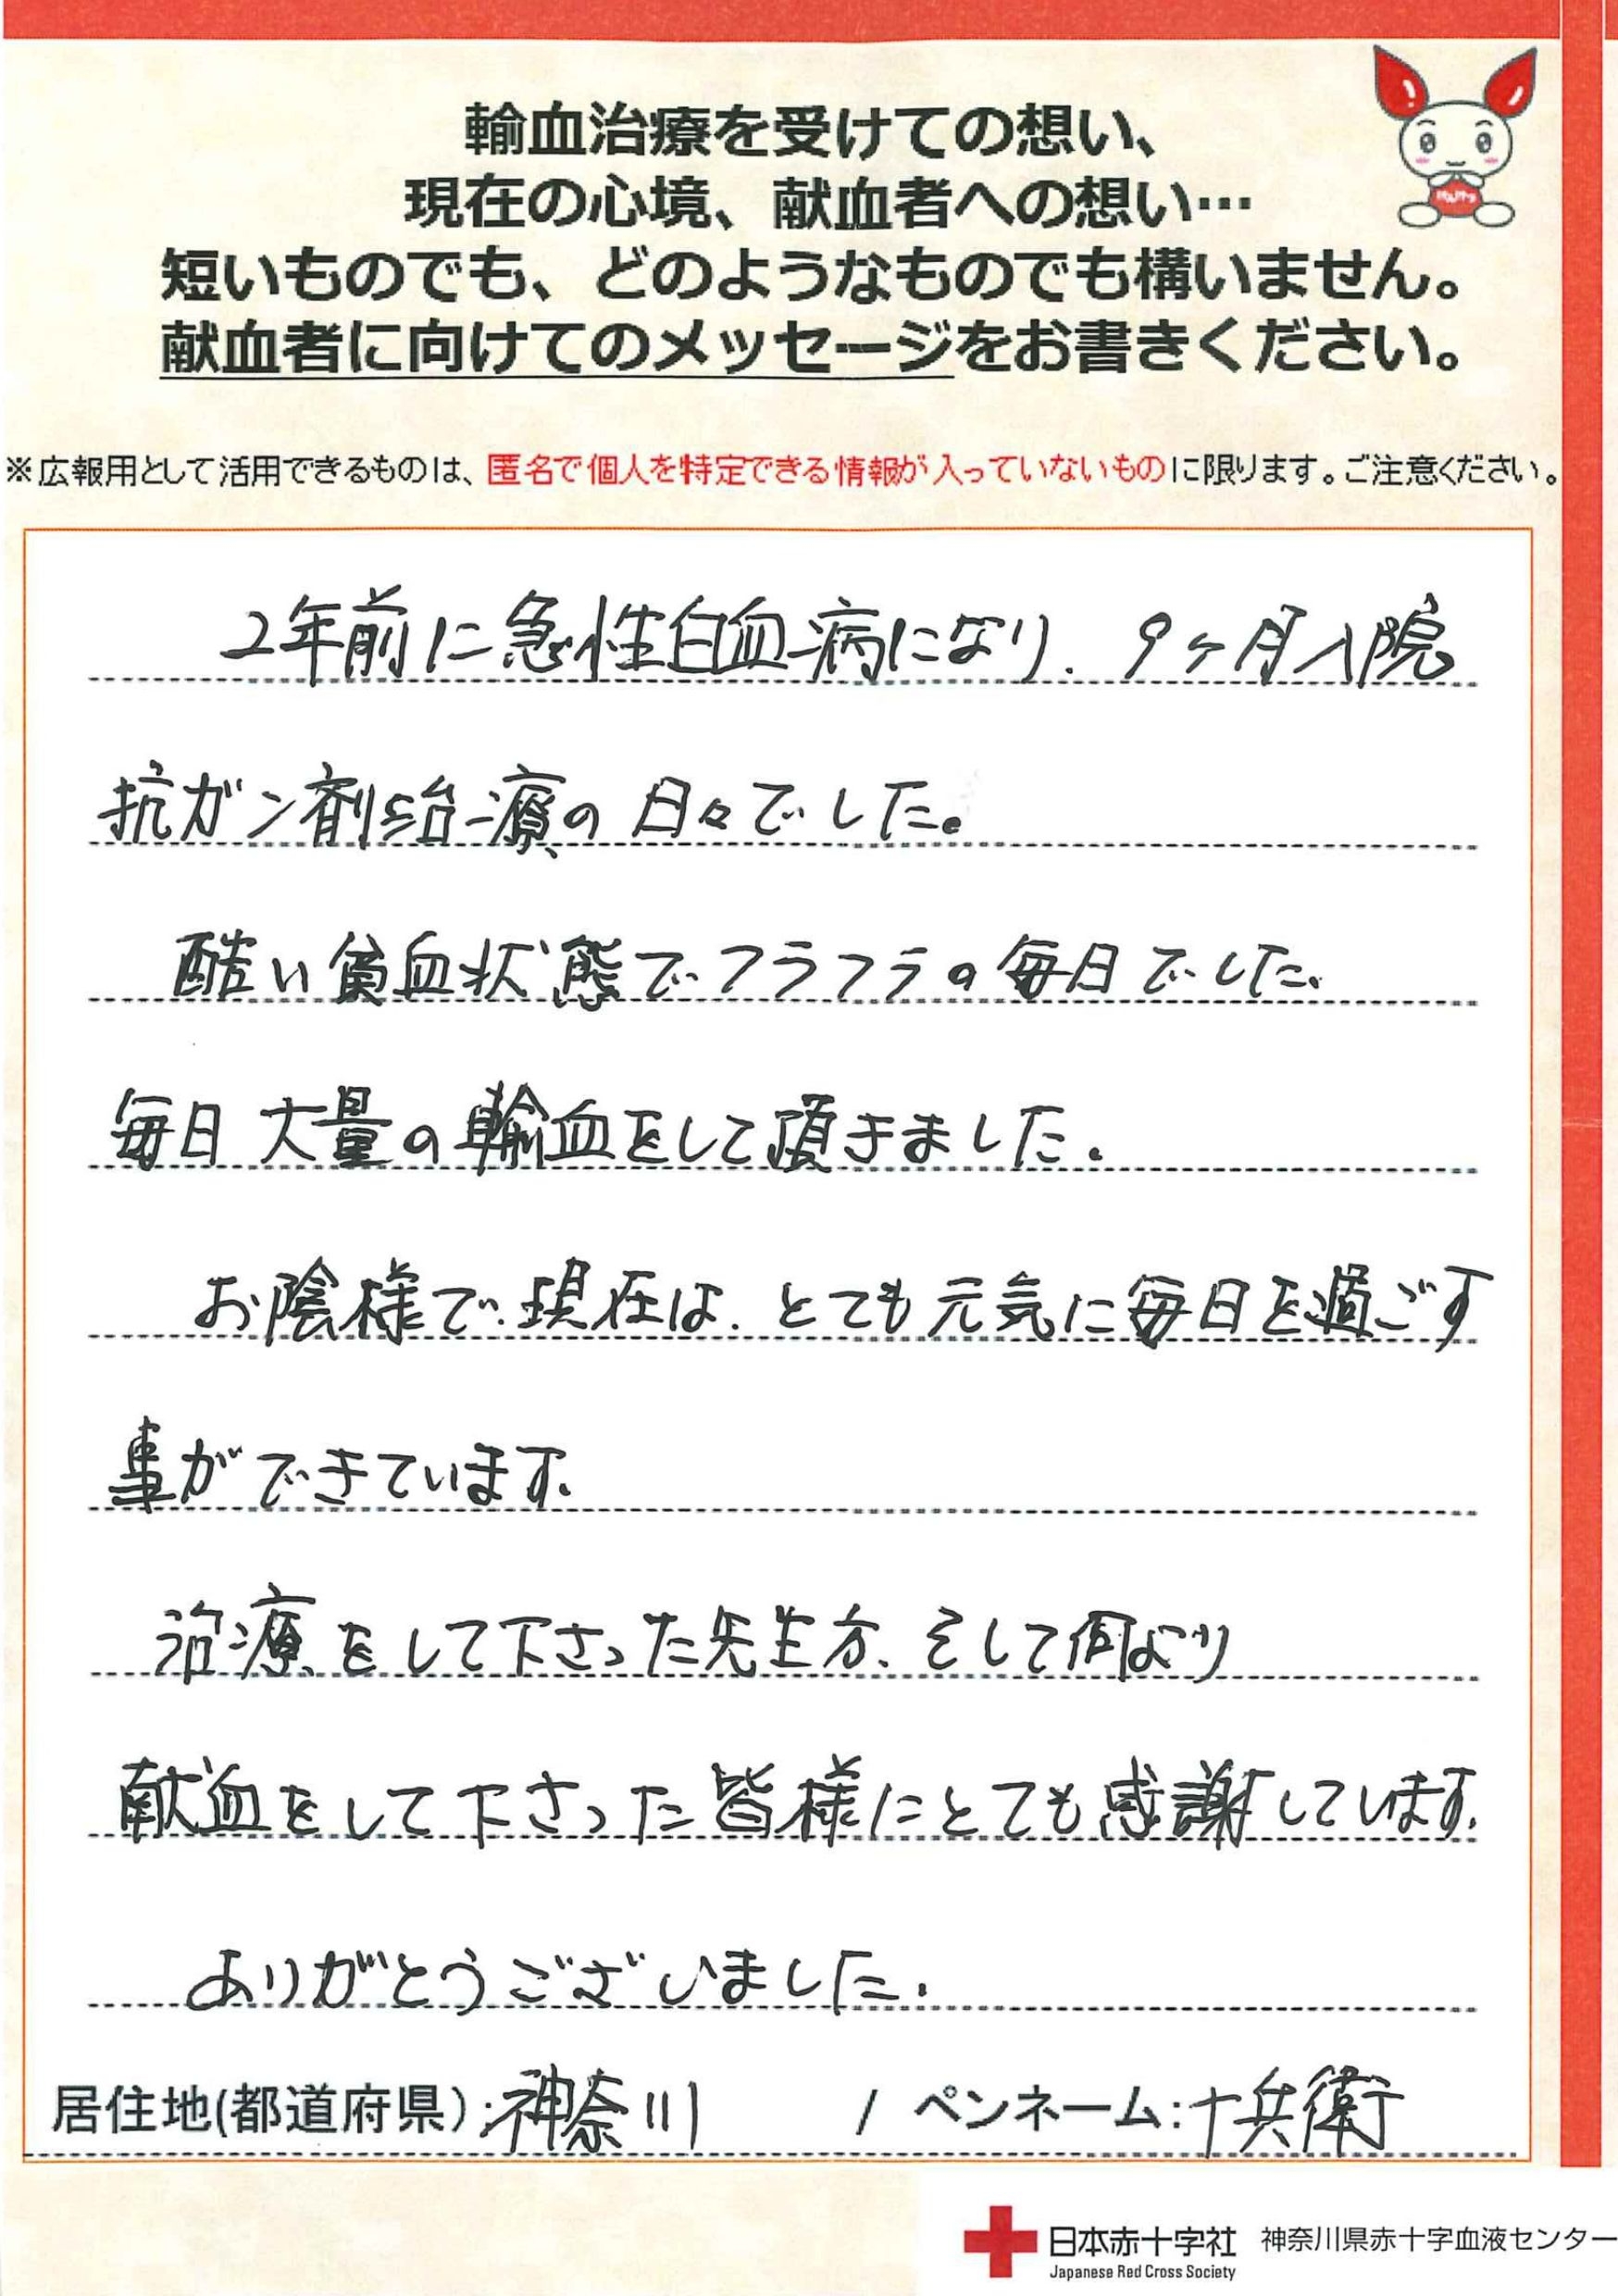 輸血治療を受けての想い、
現在の心境、献血者への想い…
短いものでも、どのようなものでも構いません。
献血者に向けてのメッセージをお書きください。
※広報用として活用できるものは、匿名で個人を特定できる情報が入っていないものに限ります。ご注意ください。
2年前に急性白血病になり、9ヶ月入院
抗ガン剤治療の日々でした。
酷い貧血状態でフラフラの毎日でした。
毎日大量の輸血をして頂きました。
お陰様で現在は、とても元気に毎日を過ごす
事ができています。
治療をして下さった先生方、そして何より
献血をして下さった皆様にとても感謝しています。
ありがとうございました。
居住地(都道府県):神奈川 / ペンネーム:十兵衛
日本赤十字社 神奈川県赤十字血液センター
Japanese Red Cross Society